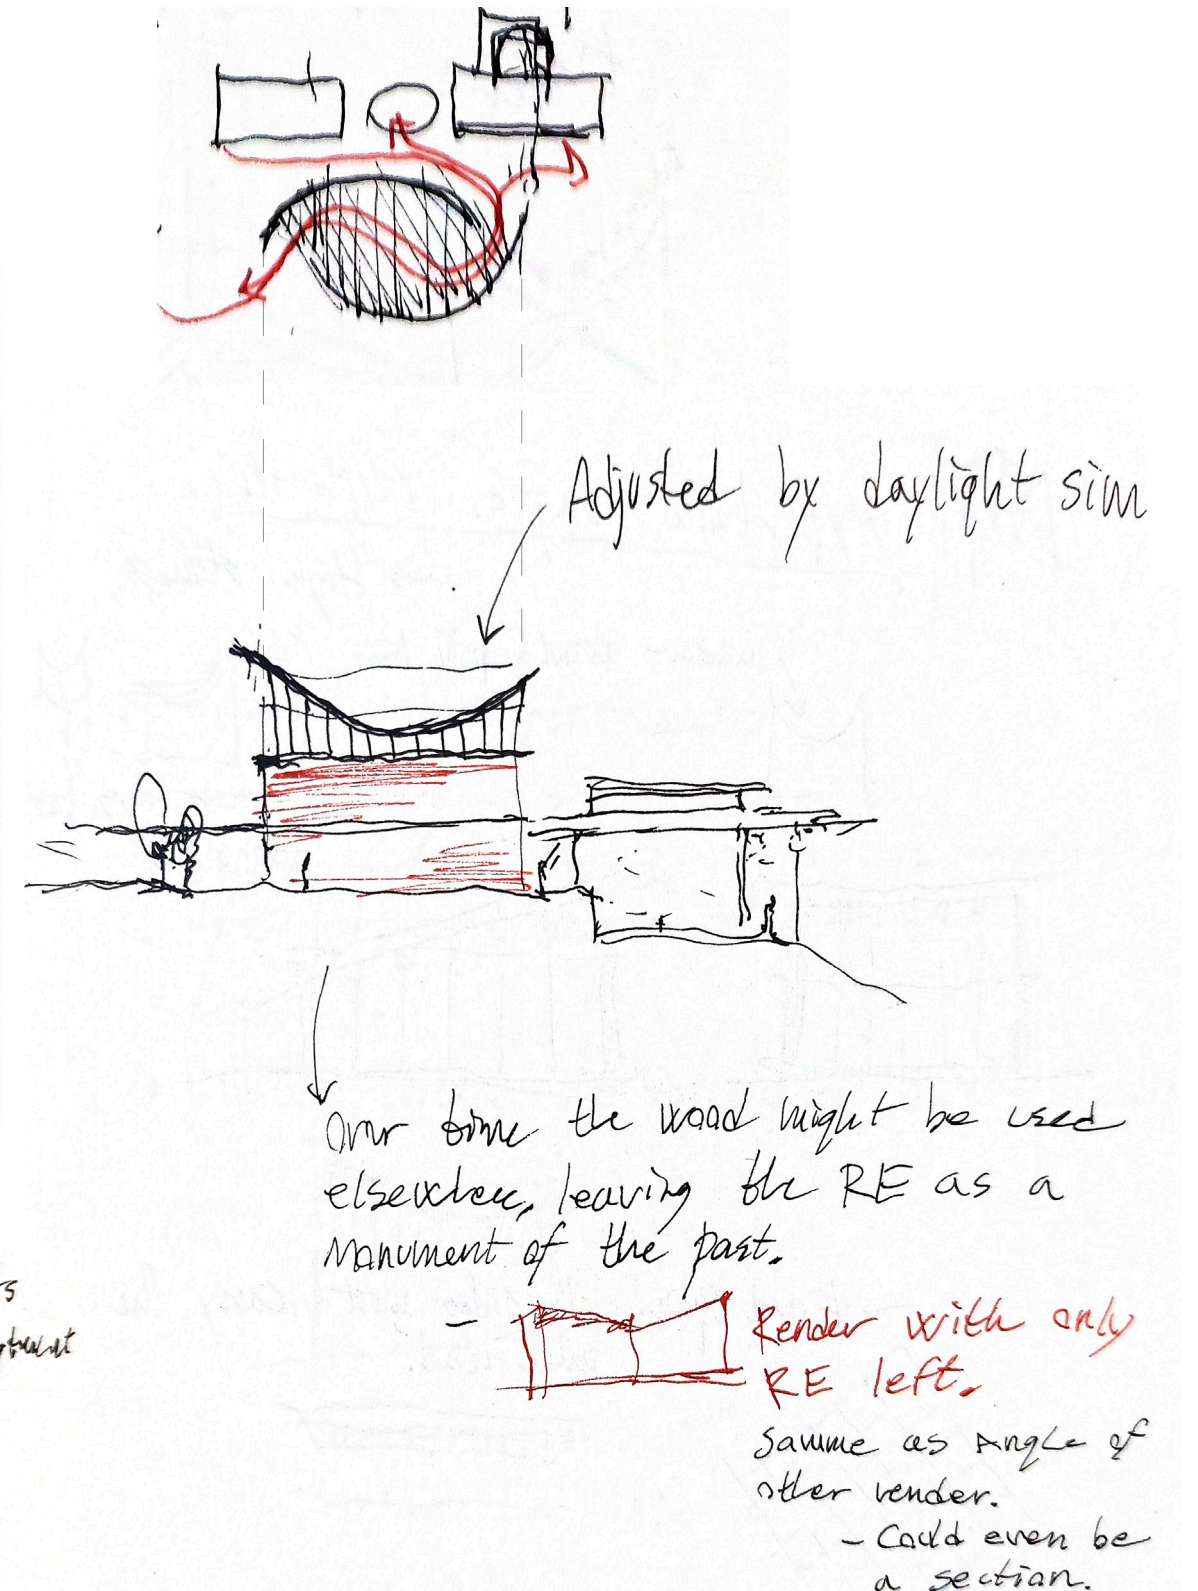 Adjusted by daylight sim
Over time the wood might be used
elsewhere, leaving the RE as a
Monument of the past.
- Render with only
RE left.
Samme as Angle of
other render.
- Could even be
a section.